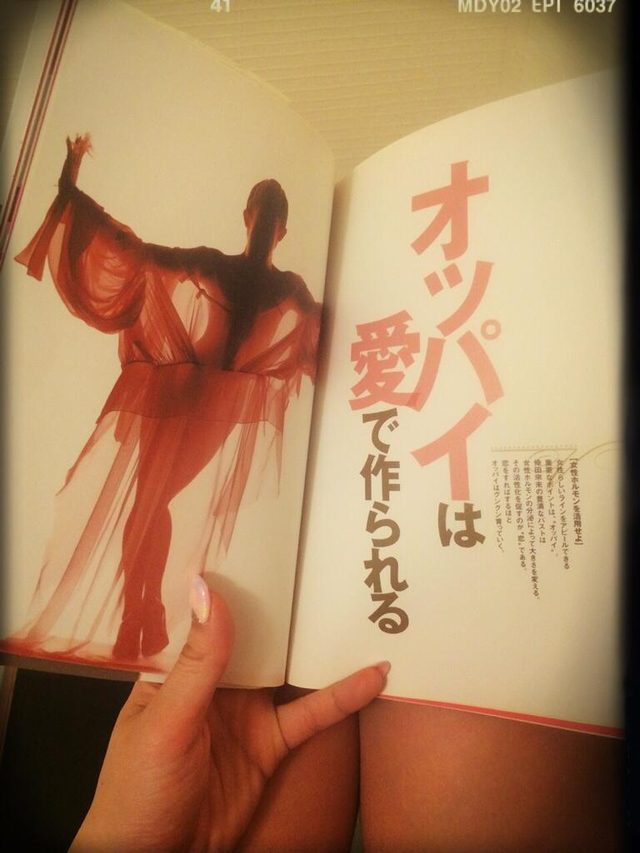 41
MDY02 EPT 6037
オッパイは
愛で作られる
[女性ホルモンを活用せよ]
女性らしいラインをアピールできる
重要なポイントは、“オッパイ”。
倖田來未の豊満なバストは
女性ホルモンの分泌によって大きさを変える。
その活性化を促すのが“恋”である。
恋をすればするほど
オッパイはグングン育っていく。